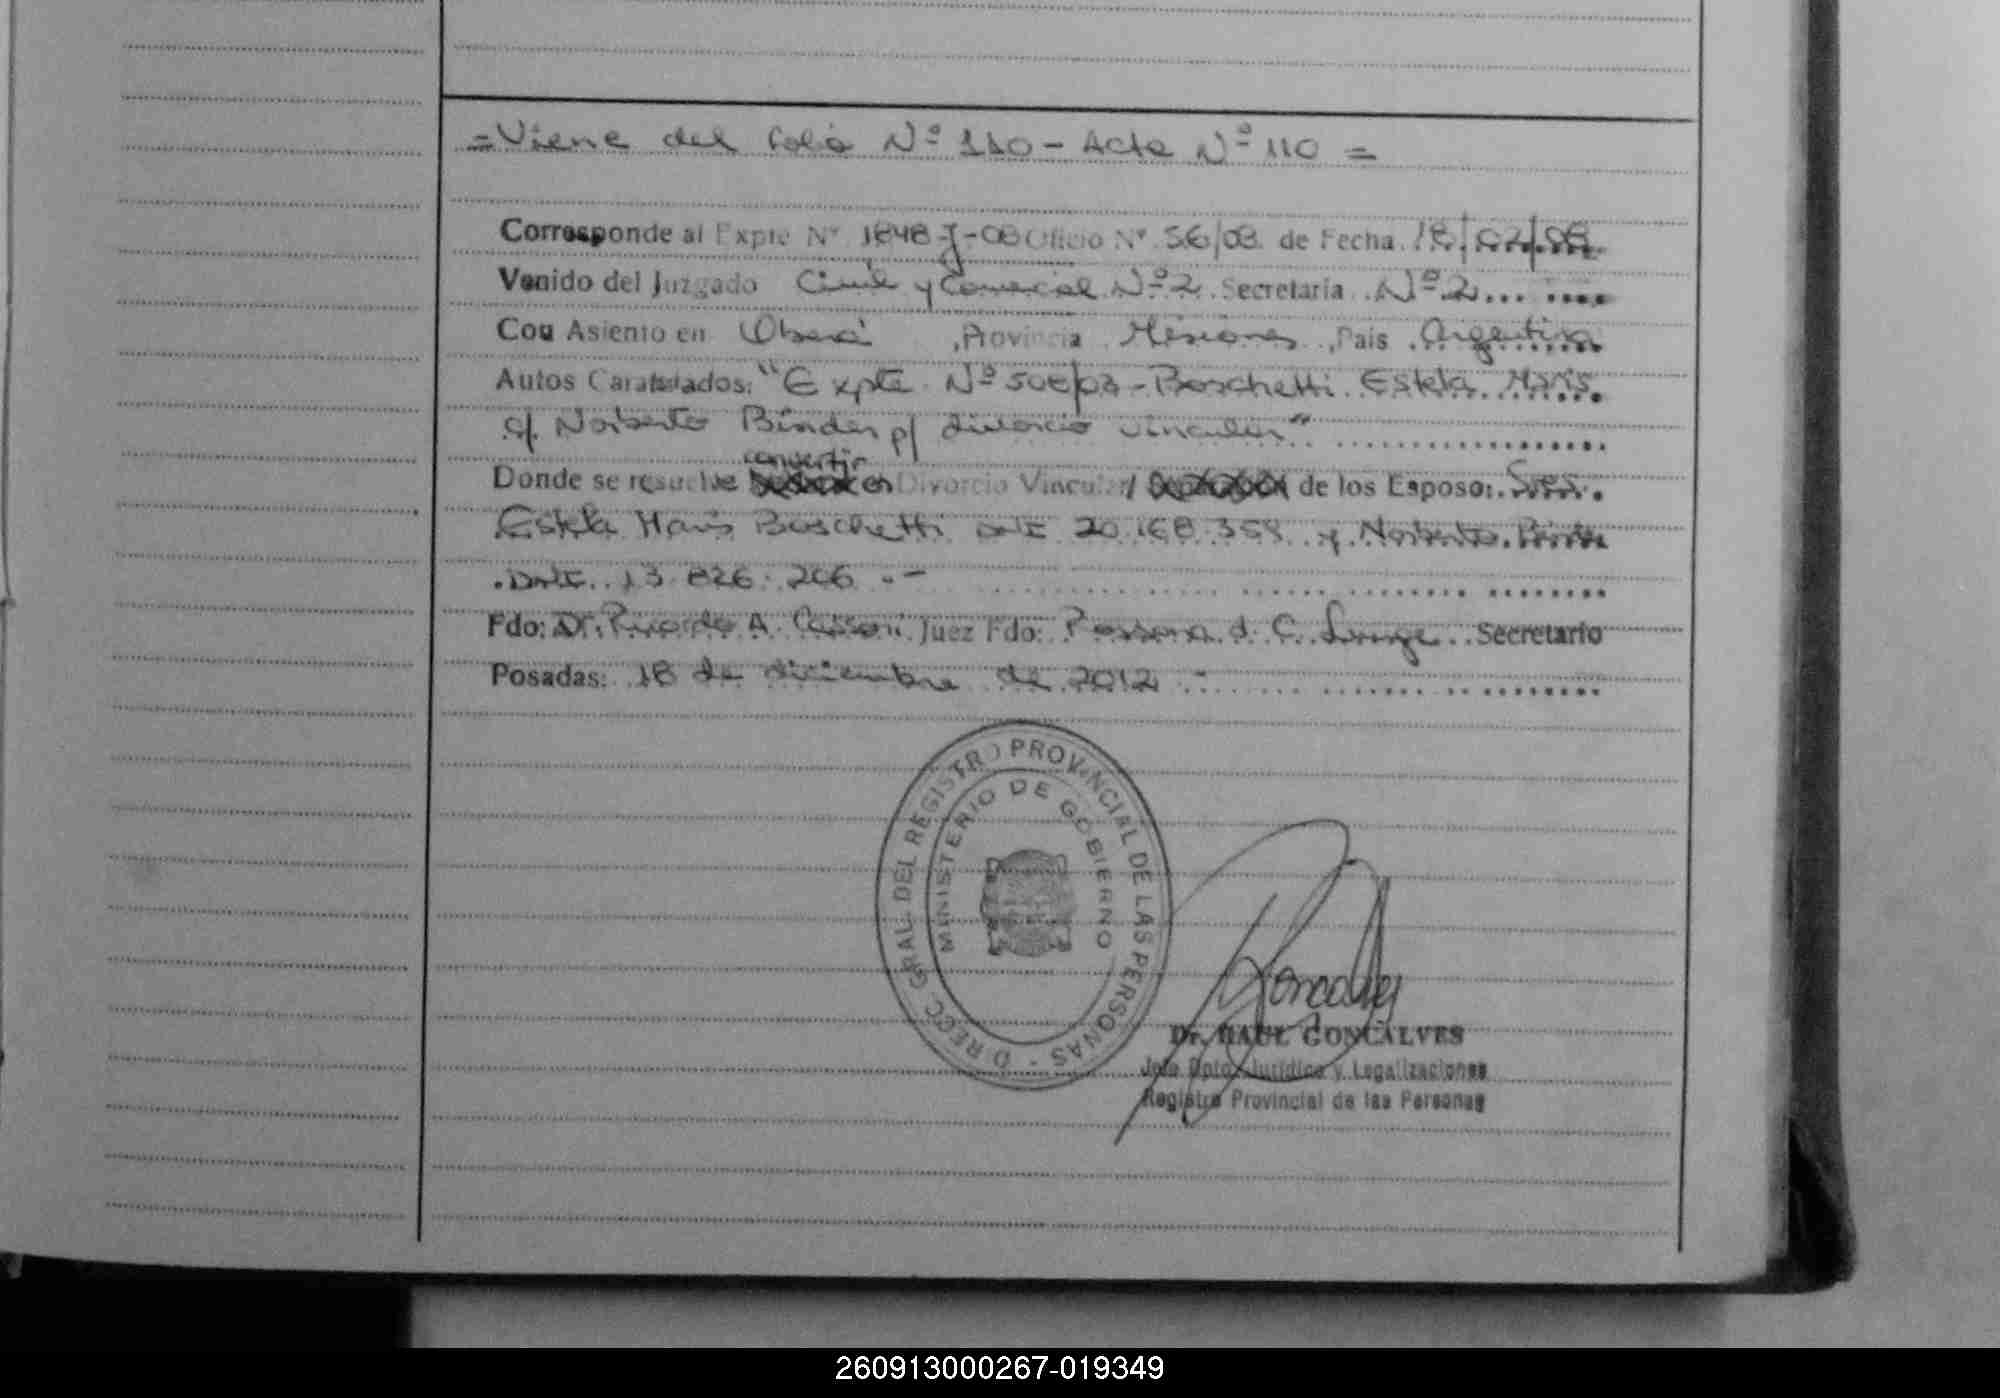 = Viene del folio Nº 110 - Acta Nº 110 =
Corresponde al Expte Nº 1848-J-08 Oficio Nº 56/08 de Fecha 18/02/08
Venido del Juzgado Civil y Comercial Nº 2 Secretaría Nº 2
Con Asiento en Oberá, Provincia Misiones, País Argentina
Autos Caratulados: "Expte Nº 508/03 - Boschetti Estela Maris
c/ Norberto Binder p/ divorcio vincular"
convertir
Donde se resuelve en Divorcio Vincular de los Esposos: Sres.
Estela Maris Boschetti DNI 20.168.358 y Norberto Binder
DNI 13.826.206.-
Fdo: Dr. Ricardo A. Juez Fdo: Secretario
Posadas: 18 de diciembre de 2012
DIRECC. GRAL. DEL REGISTRO PROVINCIAL DE LAS PERSONAS -
MINISTERIO DE GOBIERNO
Goncalves
Dr. RAUL GONCALVES
Jefe Dpto. Jurídico y Legalizaciones
Registro Provincial de las Personas
260913000267-019349